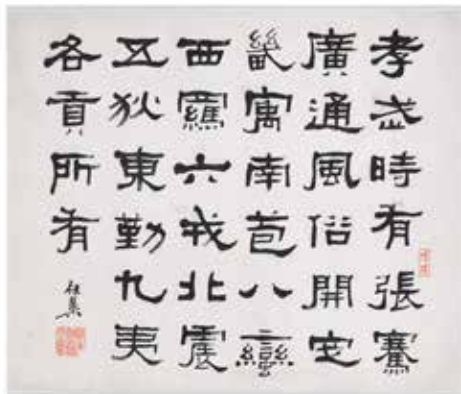 孝武時有張騫
廣通風俗開定
畿寓南苞八蠻
西羈六戎北震
五狄東勤九夷
各貢所有